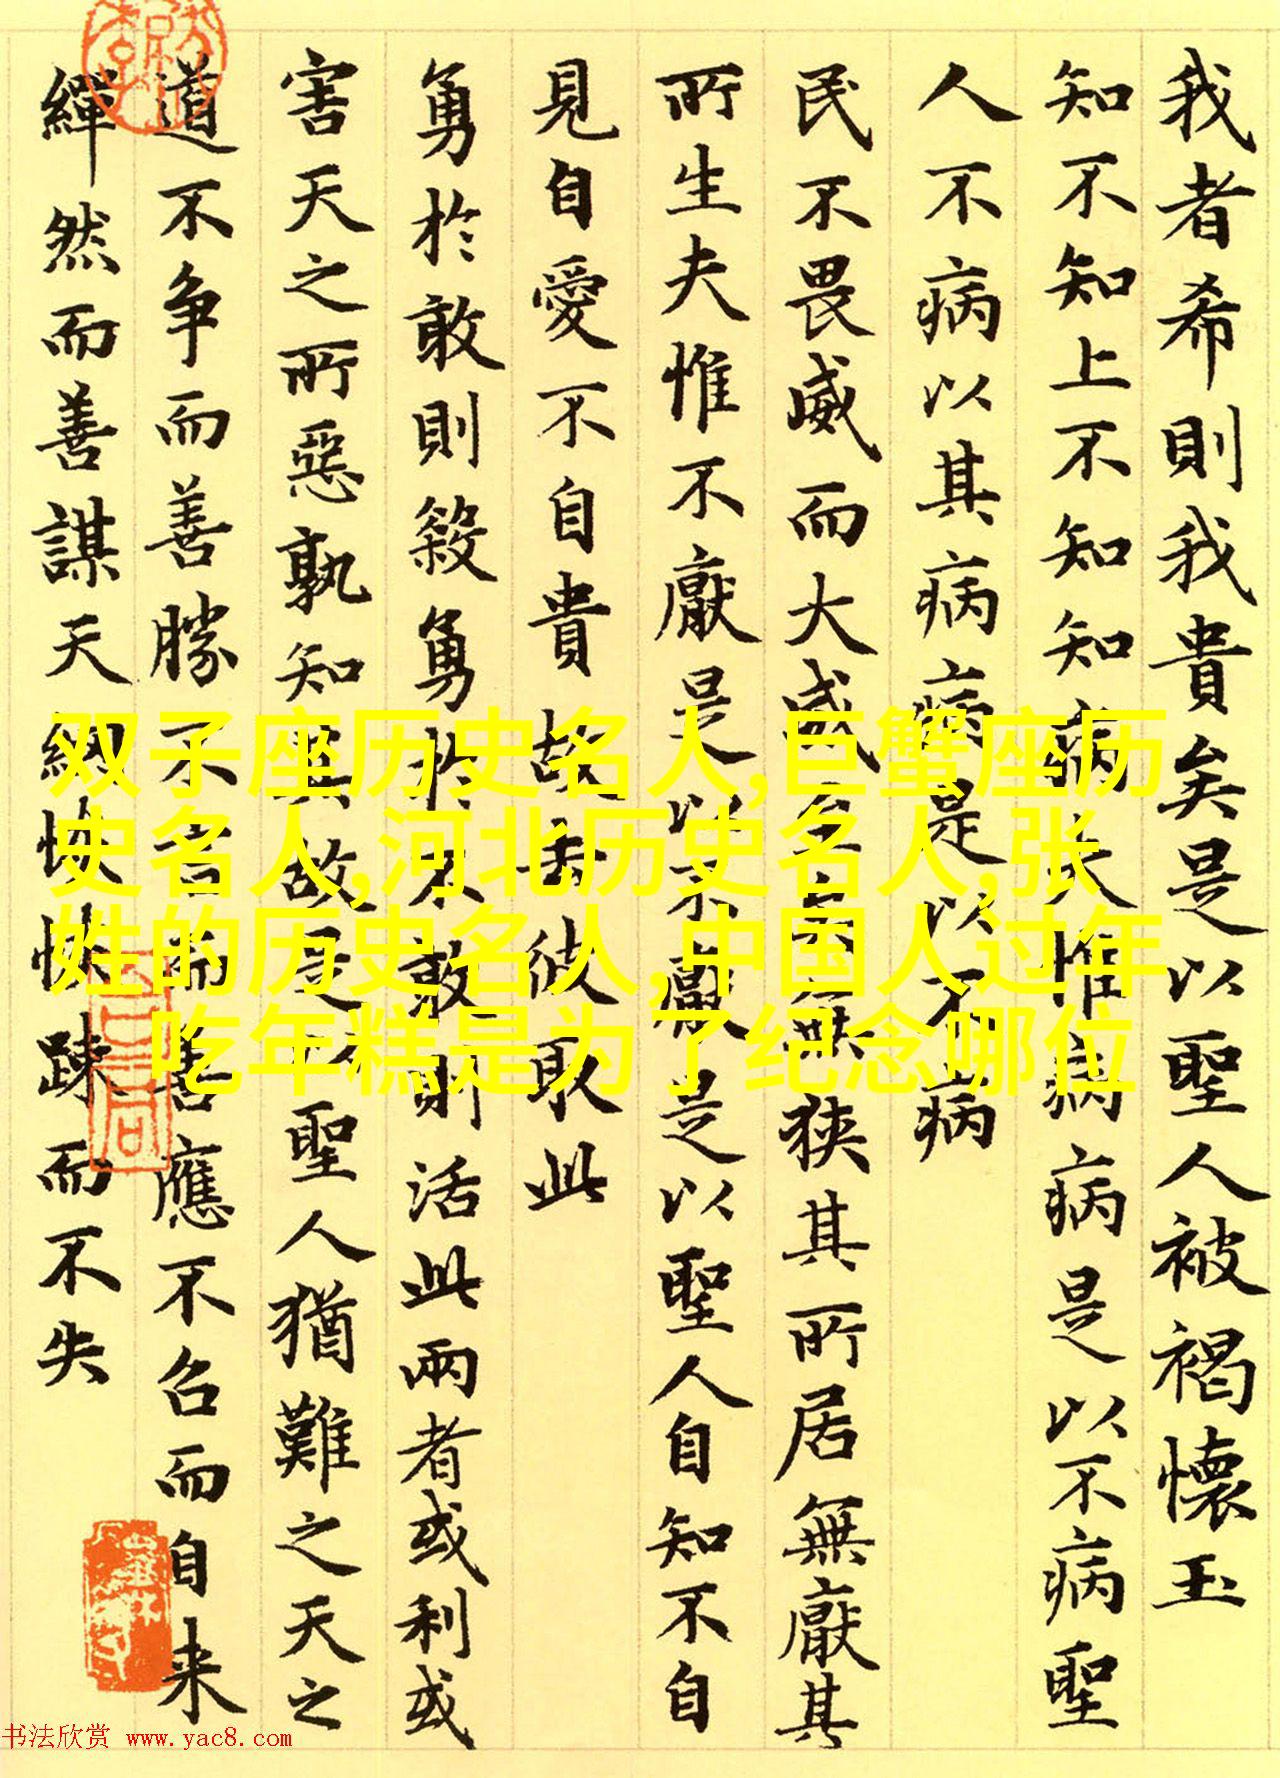 我者希則我貴矣是以聖人被褐懷玉
知不知上不知知病夫惟病病是以不病聖
人不病以其病病是以不病
民不畏威而大威至矣無狹其所居無厭其
所生夫惟不厭是以不厭是以聖人自知不自
見自愛不自貴故去彼取此
勇於敢則殺勇於不敢則活此兩者或利或
害天之所惡孰知其故是以聖人猶難之天之
道不争而善勝不言而善應不召而自来
繟然而善謀天網恢恢踈而不失
双子座历史名人,巨蟹座历
史名人,河北历史名人,张
姓的历史名人,中国人过年
吃年糕是为了纪念哪位
书法欣赏 www.yac8.com